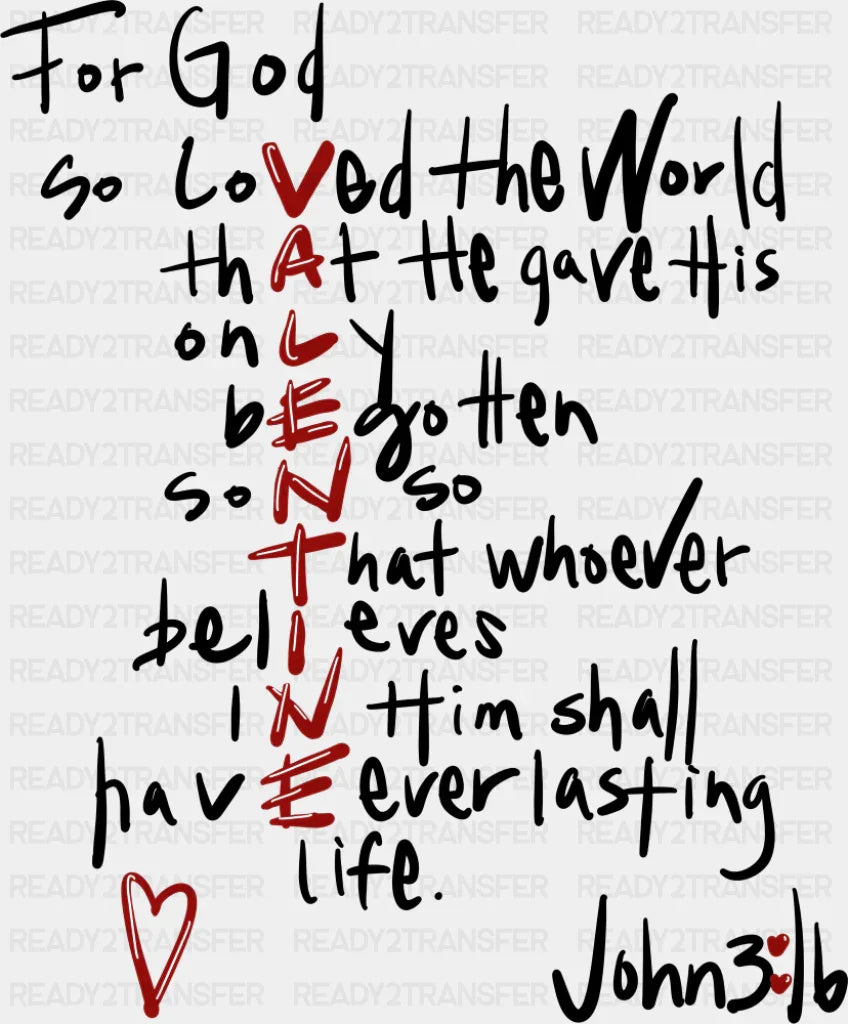 For God
so LoVed the World
thAt He gave His
onLy
bEgotten
soN so
That whoever
belIeves
iN Him shall
havE everlasting
life.
John 3:16
READY2TRANSFER